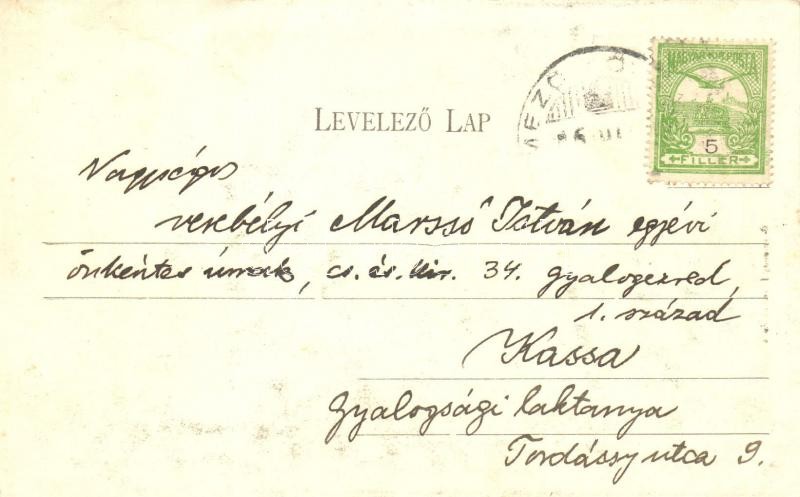 MAGYAR KIR. POSTA
5
FILLER
MEZŐ
LEVELEZŐ LAP
Nagyságos
verebélyi Marssó István egyévi
önkéntes úrnak, cs. és. kir. 34. gyalogezred,
1. század
Kassa
Gyalogsági laktanya
Tordássy utca 9.